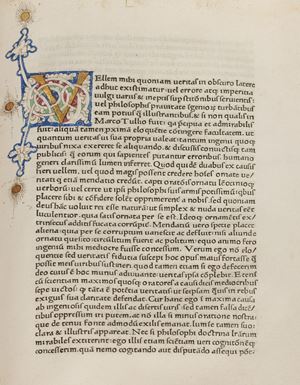 Vellem mihi quoniam ueritas in obscuro latere
adhuc existimatur: uel errore atq; imperitia
uulgi uariis & ineptis supstitiõibus seruientis:
uel philosophis prauitate ĩgenioꝝ turbãtibus
eam potius q̃ illustrãtibus: & si non qualis in
Marco Tullio fuit: qa p̃cipua et admirabilis
fuit: aliquã tamen pximã eloquẽtie cõtingere facultatem. ut
quantum ueritas ui sua propria ualeat: tantum ingenii quoq;
uiribus nixa exereret se aliquando. & discussis cõuictisq; tam
publicis q̃ eorum qui sapientes putantur erroribus. humano
generi clarissimũ lumen inferret. Quod quidẽ duabus ex causis
fieri uellem. uel quod magis possent credere hoĩes ornate ue/
ritati: q̃ etiã mendatio credũt. capti oratiõis ornatu lẽociniisq;
uerboꝝ: uel certe ut ipsi philosophi suis armis potissimũ: qbus
placere sibi & cõfidere solẽt opprimerent a nobis. sed quoniã
deus hanc uoluit rei esse naturã: ut simplex & nuda ueritas eẽt
luculentior. quia satis ornata per se est. Ideoq; ornamẽtis ex/
trinsecus additis fucata corrũpit. Mendatiũ uero specie placet
aliena: qa per se corruptũ uanescit ac diffluit: nisi aliunde
ornatu quesito: circũlitum fuerit ac politum: equo animo fero
ingeniũ mihi mediocre fuisse concessum. Verum ego nõ elo/
quentie: sed ueritatis fiducia suscepi hoc opus maius fortasse q̃
posset meis uiribus sustineri. quod tamen etiam si ego defecerim
deo cuius ẽ hoc munus adiuuante ueritas ipsa cõplebit. Etenĩ
cũ sciam etiam maximos quosq; oratores a causidicis mediocribus
sepe uictos: q̃ tãta ẽ potẽtia ueritatis: ut seipsam quãuis in rebus
exiguis sua claritate defendat. Cur hanc ego ĩ maxima causa
ab ingeniosis quidem illis ac disertis uiris sed tamen falsa dicẽti/
bus oppressum iri putem. ac nõ illa si minus oratione nostra:
que de tenui fonte admodũ exilis emanat. lumĩe tamen suo clara
& illustris appareat. Nec si philosophi doctrina lr̃arum
mirabiles extiterunt: ego illis etiam sciẽtiam ueri cognitiõem q;
concesserim. quã nemo cogitando aut disputãdo asseq̃ põt.